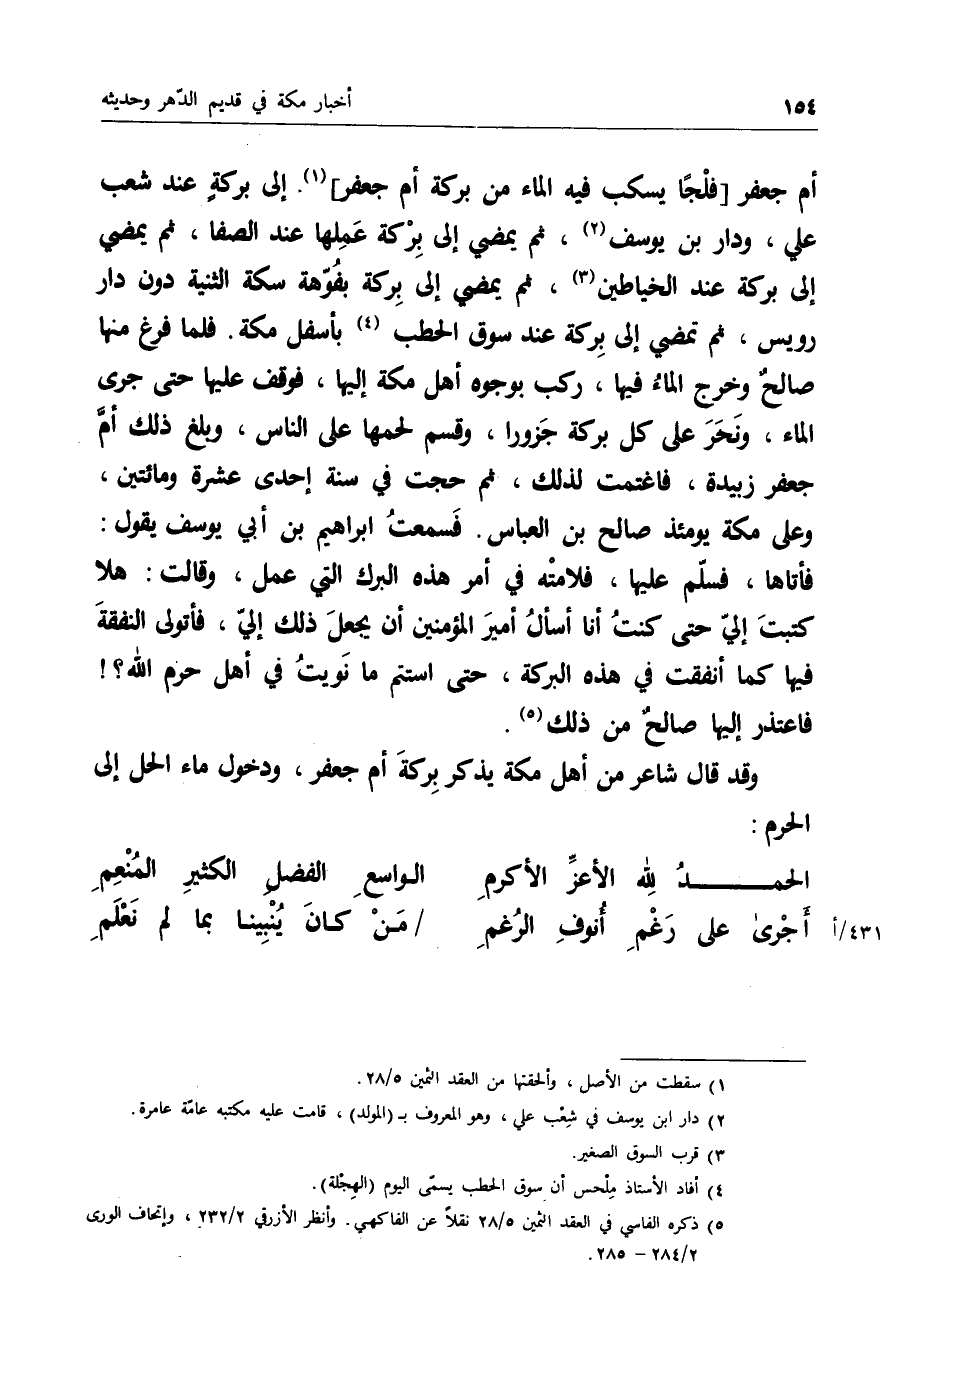 ١٥٤ أخبار مكة في قديم الدّهر وحديثه
أم جعفر [فلْجًا يسكب فيه الماء من بركة أم جعفر](١). إلى بركةٍ عند شعب
علي ، ودار بن يوسف(٢) ، ثم يمضي إلى بِرْكة عَمِلها عند الصفا ، ثم يمضي
إلى بركة عند الخياطين(٣) ، ثم يمضي إلى بِركة بفُوّهة سكة الثنية دون دار
رويس ، ثم تمضي إلى بِركة عند سوق الحطب (٤) بأسفل مكة . فلما فرغ منها
صالحٌ وخرج الماءُ فيها ، ركب بوجوه أهل مكة إليها ، فوقف عليها حتى جرى
الماء ، ونَحَرَ على كل بركة جَزورا ، وقسم لحمها على الناس ، وبلغ ذلك أمَّ
جعفر زبيدة ، فاغتمت لذلك ، ثم حجت في سنة إحدى عشرة ومائتين ،
وعلى مكة يومئذ صالح بن العباس . فَسمعتُ ابراهيم بن أبي يوسف يقول :
فأتاها ، فسلّم عليها ، فلامتْه في أمر هذه البرك التي عمل ، وقالت : هلا
كتبتَ إليّ حتى كنتُ أنا أسألُ أميرَ المؤمنين أن يجعلَ ذلك إليّ ، فأتولى النفقةَ
فيها كما أنفقت في هذه البركة ، حتى استتم ما نَويتُ في أهل حرم الله؟!
فاعتذر إليها صالحٌ من ذلك(٥) .
وقد قال شاعر من أهل مكة يذكر بِركةَ أم جعفر ، ودخول ماء الحل إلى
الحرم :
الحمــــــدُ لِلّه الأعزِّ الأكرمِ الواسعِ الفضلِ الكثيرِ المُنْعِمِ
٤٣١/أ أَجْرىٰ على رَغْمِ أُنوفِ الرُغمِ / مَنْ كانَ يُنْبِينا بما لم نَعْلَمِ
١) سقطت من الأصل ، وألحقتها من العقد الثمين ٢٨/٥ .
٢) دار ابن يوسف في شِعْب علي ، وهو المعروف بـ (المولد) ، قامت عليه مكتبه عامّة عامرة .
٣) قرب السوق الصغير .
٤) أفاد الأستاذ مِلْحس أن سوق الحطب يسمّى اليوم (الهِجْلة) .
٥) ذكره الفاسي في العقد الثمين ٢٨/٥ نقلاً عن الفاكهي . وأنظر الأزرقي ٢٣٢/٢ ، وإتحاف الورى
٢٨٤/٢ – ٢٨٥ .